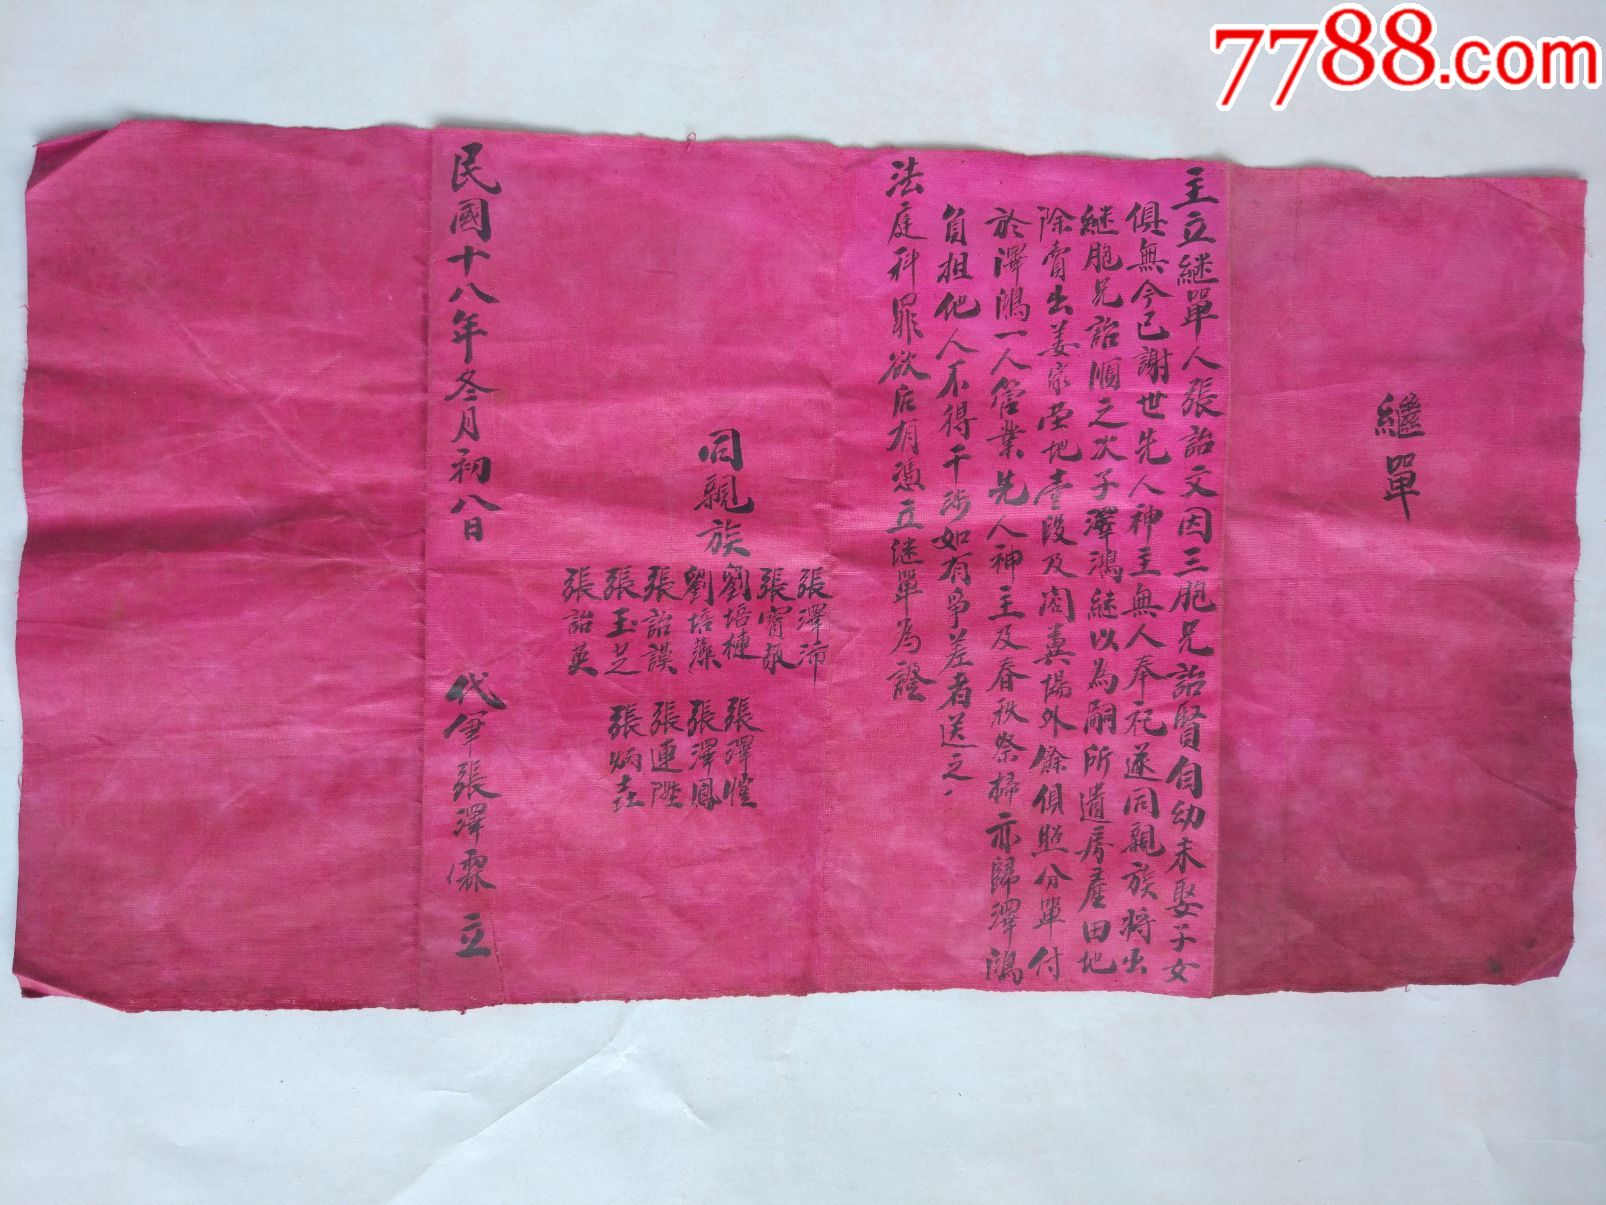 7788.com
繼單
主立継單人張詒文因三胞兄詒賢自幼未娶子女
俱無今已謝世先人神主無人奉祀遂同親族將出
継胞兄詒順之次子澤鴻継以為嗣所遺房屋田地
除賣出姜家莹地壹段及闾糞場外餘俱照分單付
於澤鴻一人管業先人神主及春秋祭掃亦歸澤鴻
負担他人不得干涉如有爭差者送之
法庭科罪欲后有憑立継單為證
同親族
張澤沛
張寶
劉培槤 張澤
劉培藻 張澤鳳
張詒謨 張連陞
張玉芝 張炳
張詒英
民國十八年冬月初八日 代筆張澤霖 立